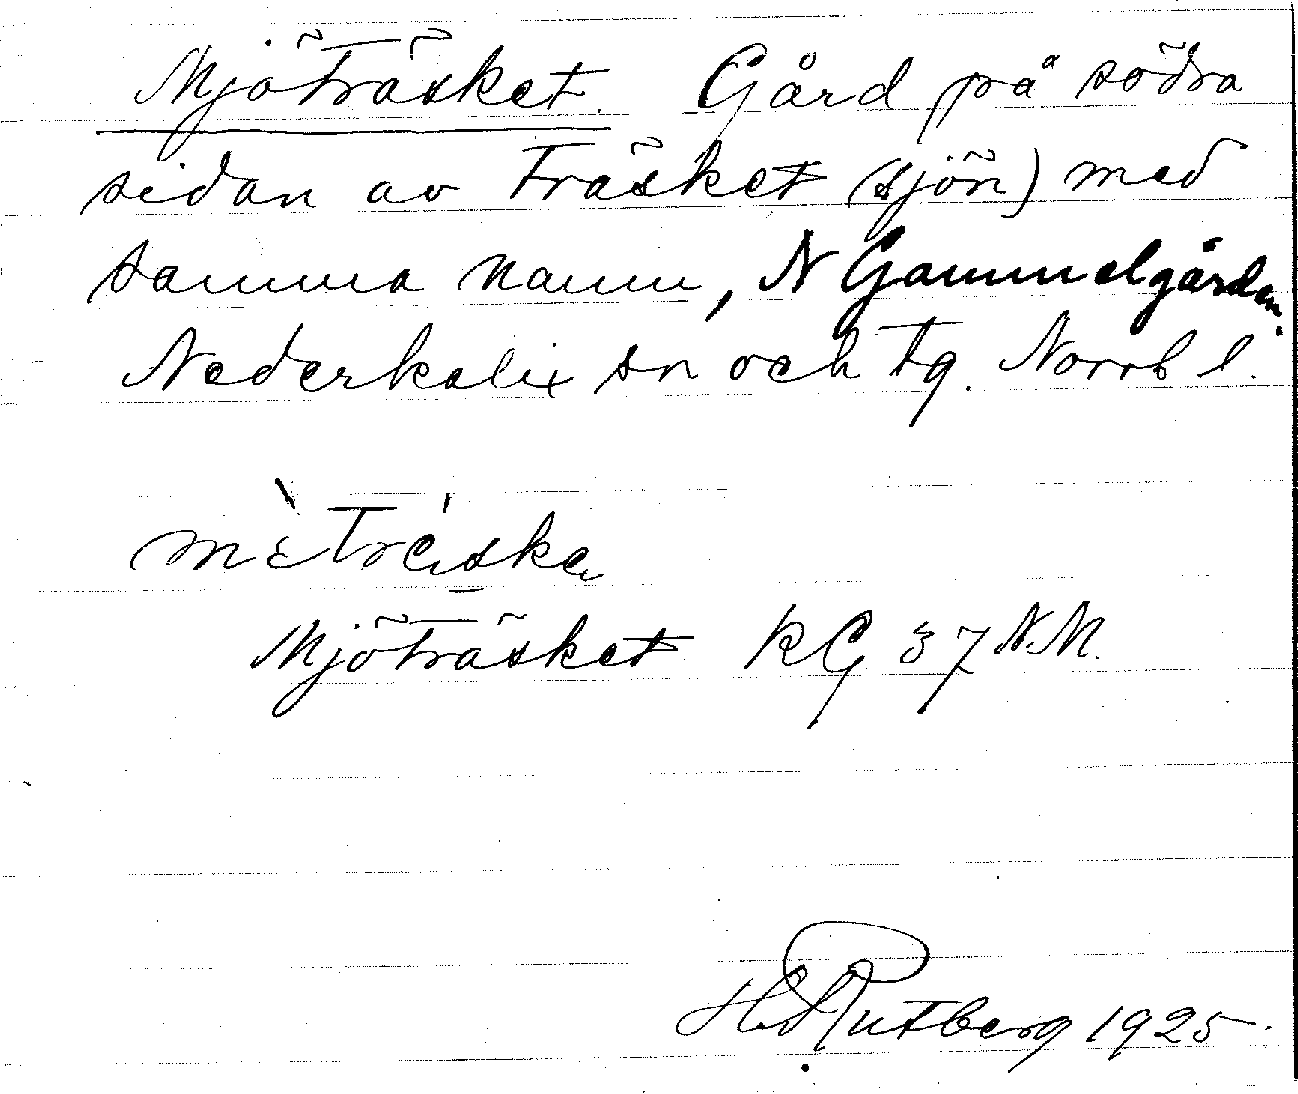 Mjöträsket. Gård på södra
sidan av Träsket (sjön) med
samma namn, N Gammelgården.
Nederkalix sn och tg. Norrb l.
Mjöträsket KG 37 N.M.
H. Rutberg 1925.